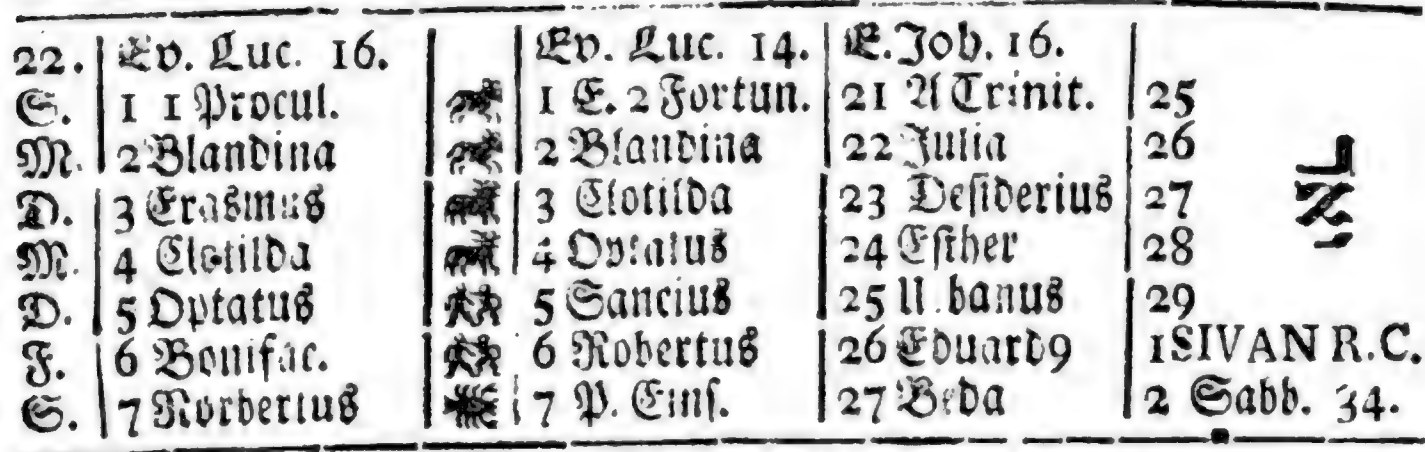 22. Ev. Luc. 16. Ev. Luc. 14. E. Joh. 16.
S. 1 1 Procul. 1 E. 2 Fortun. 21 A Trinit. 25
M. 2 Blandina 2 Blandina 22 Julia 26
D. 3 Erasmus 3 Clotilda 23 Desiderius 27
M. 4 Clotilda 4 Optatus 24 Esther 28
D. 5 Optatus 5 Sancius 25 U banus 29
F. 6 Bonifac. 6 Robertus 26 Eduard9 1 SIVAN R.C.
S. 7 Norbertus 7 P. Eins. 27 Beda 2 Sabb. 34.